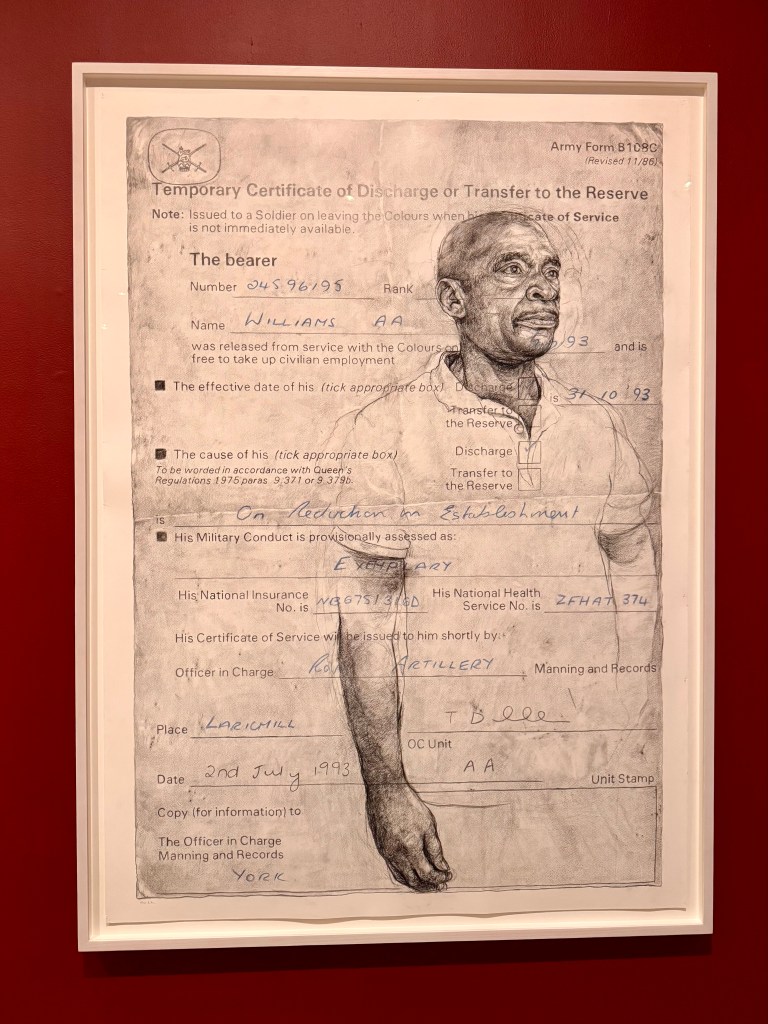 Army Form B108C
(Revised 11/86)
Temporary Certificate of Discharge or Transfer to the Reserve
Note: Issued to a Soldier on leaving the Colours when his Certificate of Service
is not immediately available.
The bearer
Number 24596195 Rank
Name WILLIAMS AA
was released from service with the Colours on 93 and is
free to take up civilian employment
The effective date of his (tick appropriate box) Discharge is 31 10 '93
Transfer to
the Reserve
The cause of his (tick appropriate box) Discharge
To be worded in accordance with Queen's
Regulations 1975 paras 9.371 or 9.379b.
Transfer to
the Reserve
is On Reduction in Establishment
His Military Conduct is provisionally assessed as:
EXEMPLARY
His National Insurance
No. is
His National Health
Service No. is ZFHAT 374
His Certificate of Service will be issued to him shortly by:
Officer in Charge ARTILLERY Manning and Records
Place
OC Unit
Date 2nd July 1993 AA Unit Stamp
Copy (for information) to
The Officer in Charge
Manning and Records
YORK